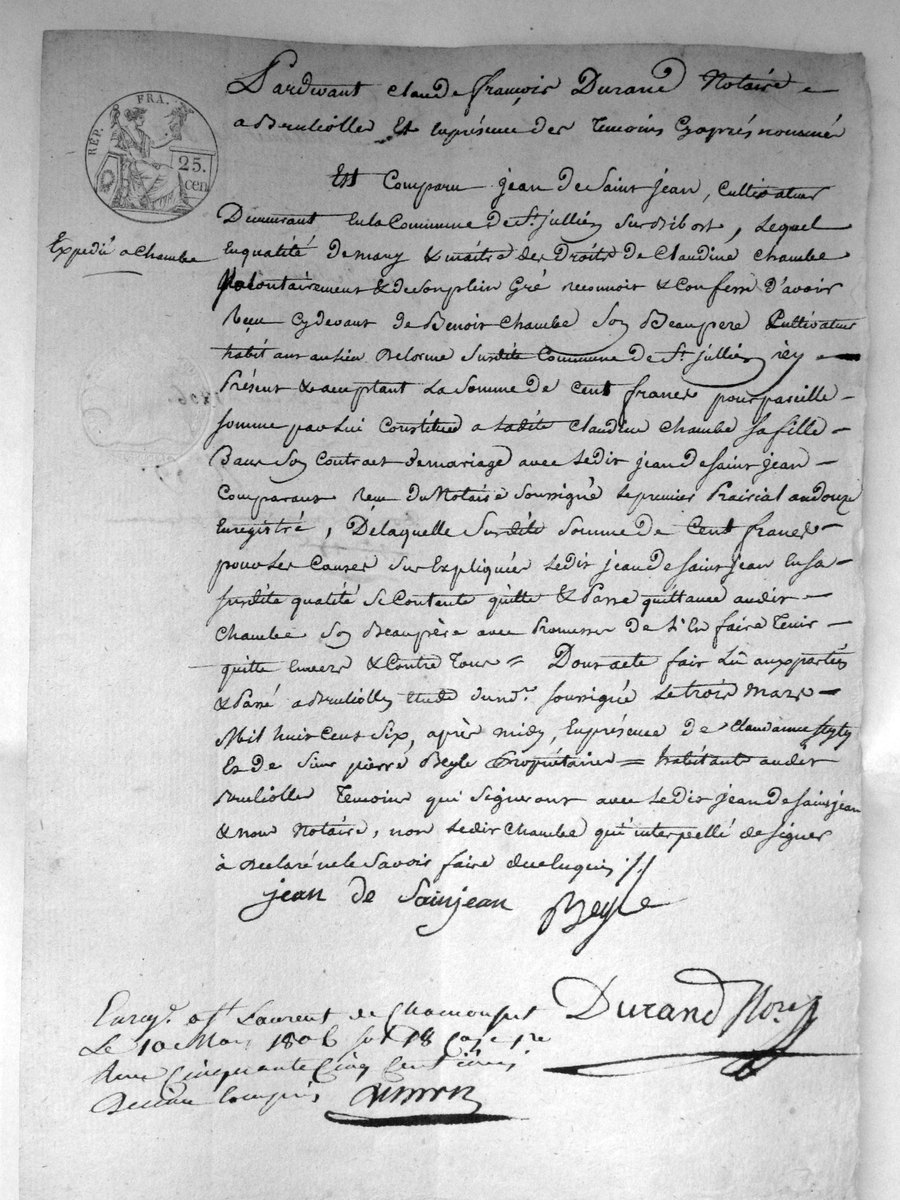 REP. FRA.
25.
cen
Pardevant Claude françois Durand Notaire
a Brulliolles Et En présence des Temoins Cy après nommés
Est Comparu jean de Saint jean, Cultivateur
Demeurant En la Commune de St. jullien Sur Bibost, Lequel
Expedié a Chambe
En qualité de mary & maitre des Droits de Claudine Chambe
Volontairement & de Son plein Gré reconnoit & Confesse D'avoir
Reçu Cy devant de Benoit Chambe Son Beaupere Cultivateur
habitant au lieu Delorme Susdite Commune de St. jullien icy
Présent & acceptant La Somme de Cent francs pour pareille
Somme par Lui Constituée a Ladite Claudine Chambe Sa fille
Dans Son Contract de mariage avec Ledit jean de Saint jean
Comparant Reçu du Notaire Soussigné Le premier Prairial an douze
Enregistré, De laquelle Susdite Somme de Cent francs
pour Les Causes Sus Expliquées Ledit jean de Saint jean En Sa
Susdite qualité Se Contente quitte & Passe quittance audit
Chambe Son Beaupère avec Promesse de L'En faire Tenir
quitte Envers & Contre Tous = Dont acte fait Lû aux parties
& Passé a Brulliolles Etude du nre. Soussigné Le trois mars
Mil huit Cent Six, après midy, En présence de
Et de Sieur pierre Beyle Propriétaire = habitants audit
Brulliolles Temoins qui Signeront avec Ledit jean de Saint jean
& nous Notaire, non Ledit Chambe qui interpellé de Signer
à Declaré ne le Savoir faire de ce Enquis ://
jean de Sainjean Beyle
Durand Nore
Enregé. a St. Laurent de Chamousset
Le 10 Mars 1806 fol 18 Case 1re
Reçu Cinquante Cinq Centimes
Decime Compris